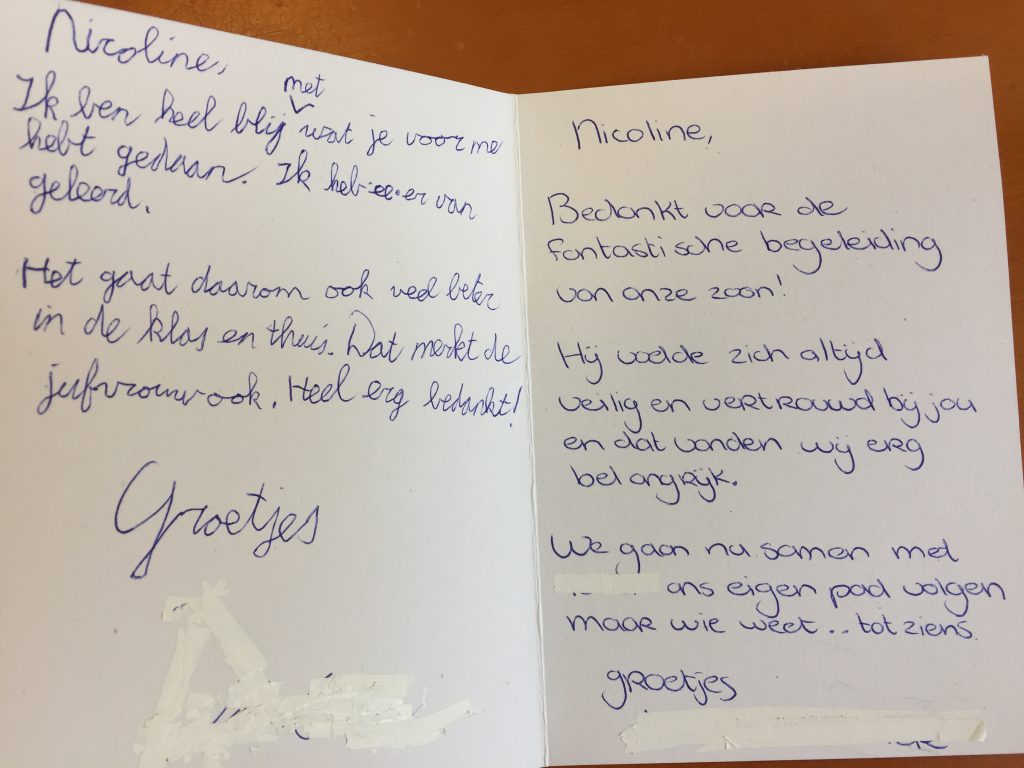 Nicoline,
met
Ik ben heel blij wat je voor me
hebt gedaan. Ik heb er van
geleerd.
Het gaat daarom ook veel beter
in de klas en thuis. Dat merkt de
jufvrouw ook. Heel erg bedankt!
Groetjes
Nicoline,
Bedankt voor de
fantastische begeleiding
van onze zoon!
Hij voelde zich altijd
veilig en vertrouwd bij jou
en dat vonden wij erg
belangrijk.
We gaan nu samen met
ons eigen pad volgen
maar wie weet... tot ziens.
groetjes